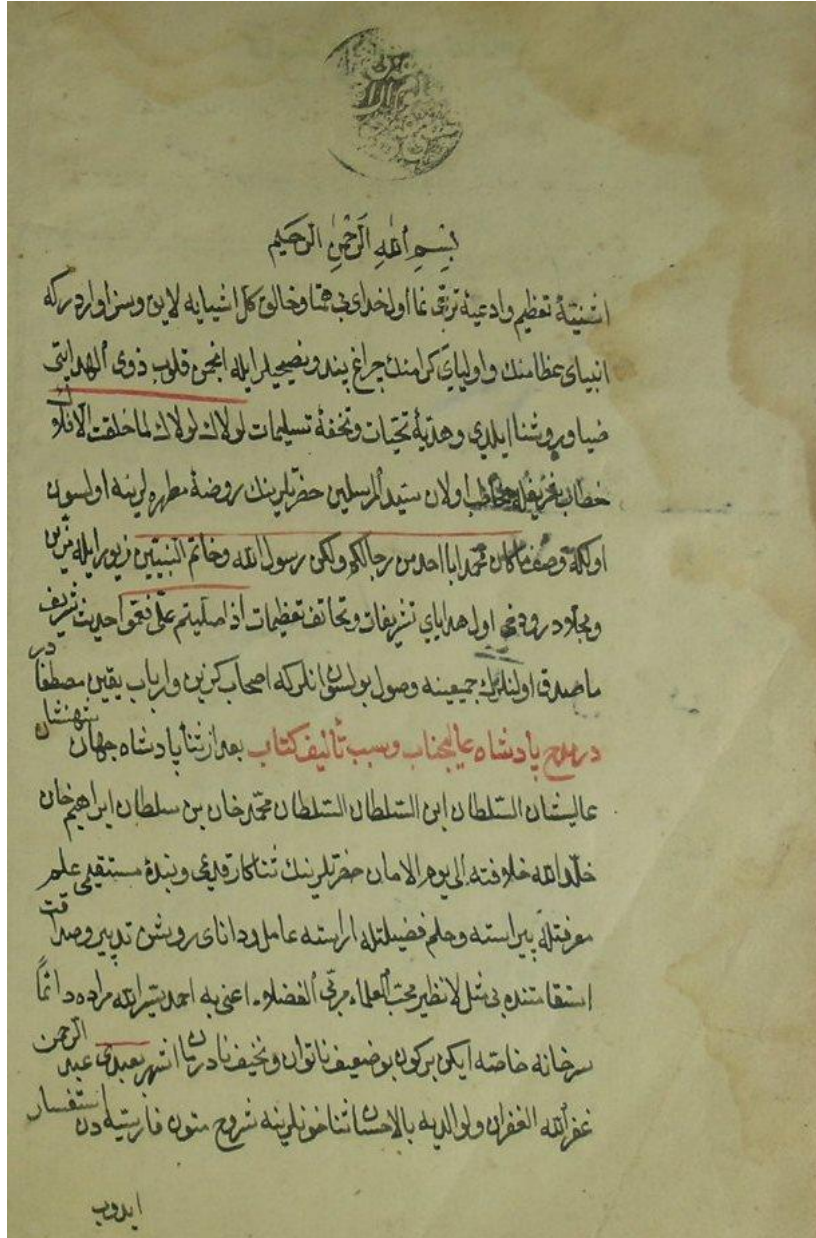 بِسْمِ اللهِ الرَّحْمٰنِ الرَّحِيمِ
اثنیۀ تعظیم وادعیۀ ترقی نما اول خدای بی همتا وخالق کل اشیایه لایق وسزاواردرکه
انبیای عظامنك واولیای کرامنك چراغ پند ونصیحیلرایله انجمن قلوب ذوی الهدایتی
ضیا وروشنا ایلدی وهدیۀ تحیات وتحفۀ تسلیمات لولاك لولاك لما خلقت الافلاك
خطاب اولان سید المرسلین حضرتلرینك روضۀ مطهره لرینه اولسون
اولکه وصف ماکان محمد ابا احد من رجالکم ولکن رسول الله وخاتم النبیین زیورایله مزین
اول هدایای تشریفات وتحائف تعظیمات اذا صلیتم علی فعمموا حدیث شریف
ماصدقی اولنلرك جمیعینه وصول بولسون انلرکه اصحاب کزین وارباب یقین مصطفادر
درمدح پادشاه عالیجناب وسبب تألیف کتاب بعد از ثنا پادشاه جهان شهنشاه
عالیشان السلطان ابن السلطان السلطان محمد خان بن سلطان ابراهیم خان
خلد الله خلافته الی یوم الامان حضرتلرینك ثناکار قدیمی وبندۀ مستقیمی علم
معرفتله پیراسته وحلم فضیلتله اراسته عامل ودانای روشن تدبیر وصداقت
استقامتنده بی مثل لانظیر محب العلماء مربی الفضلاء اعنی به احمد یسر الله مراده دائماً
سرخانه خاصه ایکن برکون بو ضعیف ناتوان ونحیف نادرمان اشهر بعبدی عبد الرحمن
غفر الله الغفران ولوالدیه بالاحسان ثناخوانلرینه شروح متون فارسیه دن استفسار
ایدوب